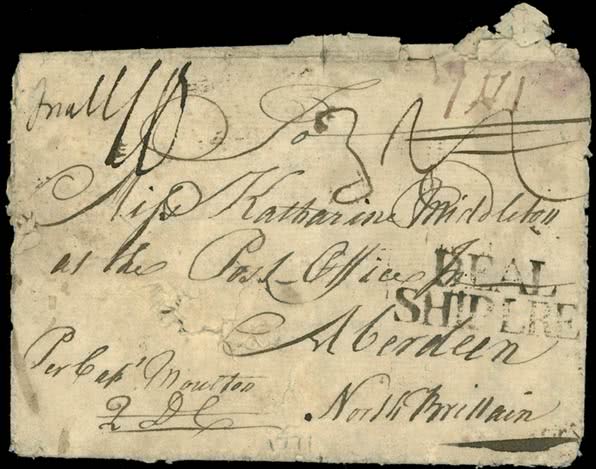 To
Miss Katharine Middleton
at the Post Office In
Aberdeen
North Brittain
DEAL
SHIP LRE
Per Capt Moulton
2 DC